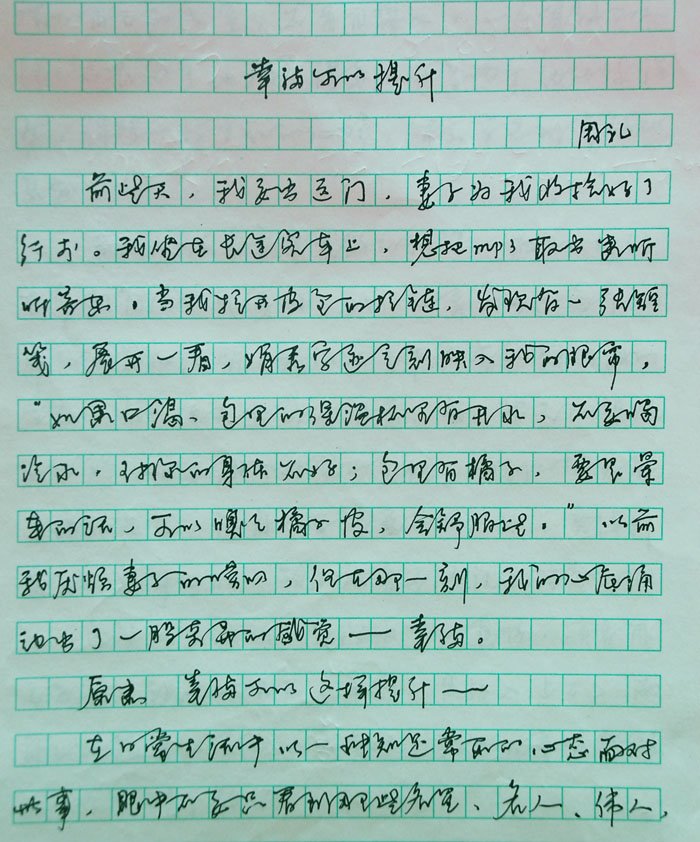 幸福可以提升
周礼
前些天，我要出远门，妻子为我收拾好了
行李。我坐在长途客车上，想把mp3取出来听
听音乐。当我拉开皮包的拉链，发现有一张短
笺，展开一看，娟秀字迹立刻映入我的眼帘，
“如果口渴、包里的保温杯里有开水，不要喝
冷水，对你的身体不好；包里有橘子，要是晕
车的话，可以嗅嗅橘子皮，会舒服些。”以前
我厌烦妻子的唠叨，但在那一刻，我的心底涌
动出了一股异样的感觉——幸福。
原来 幸福可以这样提升——
在日常生活中以一种知足常乐的心态面对
世事，眼中不要只看到那些名星、名人、伟人，